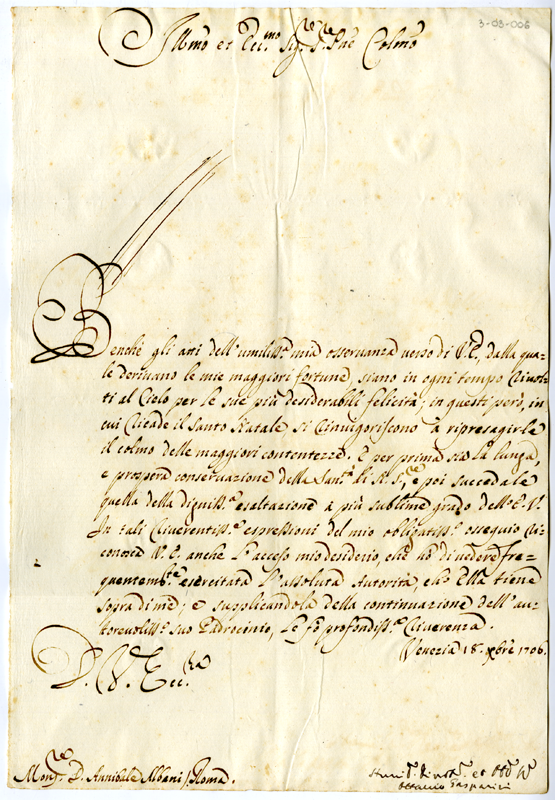 3-03-006
Illmo et Ecc.mo Sig.re S.re Pne Colmo
Benche gli atti dell'umiliss.a mia osseruanza uerso di V.E., dalla qua=
le deriuano le mie maggiori fortune, siano in ogni tempo riuol=
ti al Cielo per le sue più desiderabili felicità; in questi però, in
cui cade il Santo Natale si rinuigoriscono à ripresagirle
il colmo delle maggiori contentezze. E per prima sia la lunga,
e prospera conseruazione della San.tà di N. S.re, e poi succeda le
quella della digniss.a esaltazione à più sublime grado dell'E.V.
In tali riuerentiss.e espressioni del mio obligatiss.o ossequio ri=
conosca V.E. anche l'acceso mio desiderio, che hò di uedere fre=
quentem.te esercitata l'assoluta Autorità, ch'Ella tiene
sopra di mè; e supplicandola della continuazione dell'au=
toreuoliss.o suo Padrocinio, le fò profondiss.a riuerenza.
Venezia 18. Xbre 1706.
D. V. Ecc.za
Mons.re D. Annibale Albani / Roma.
et
Ottauio Gasparini